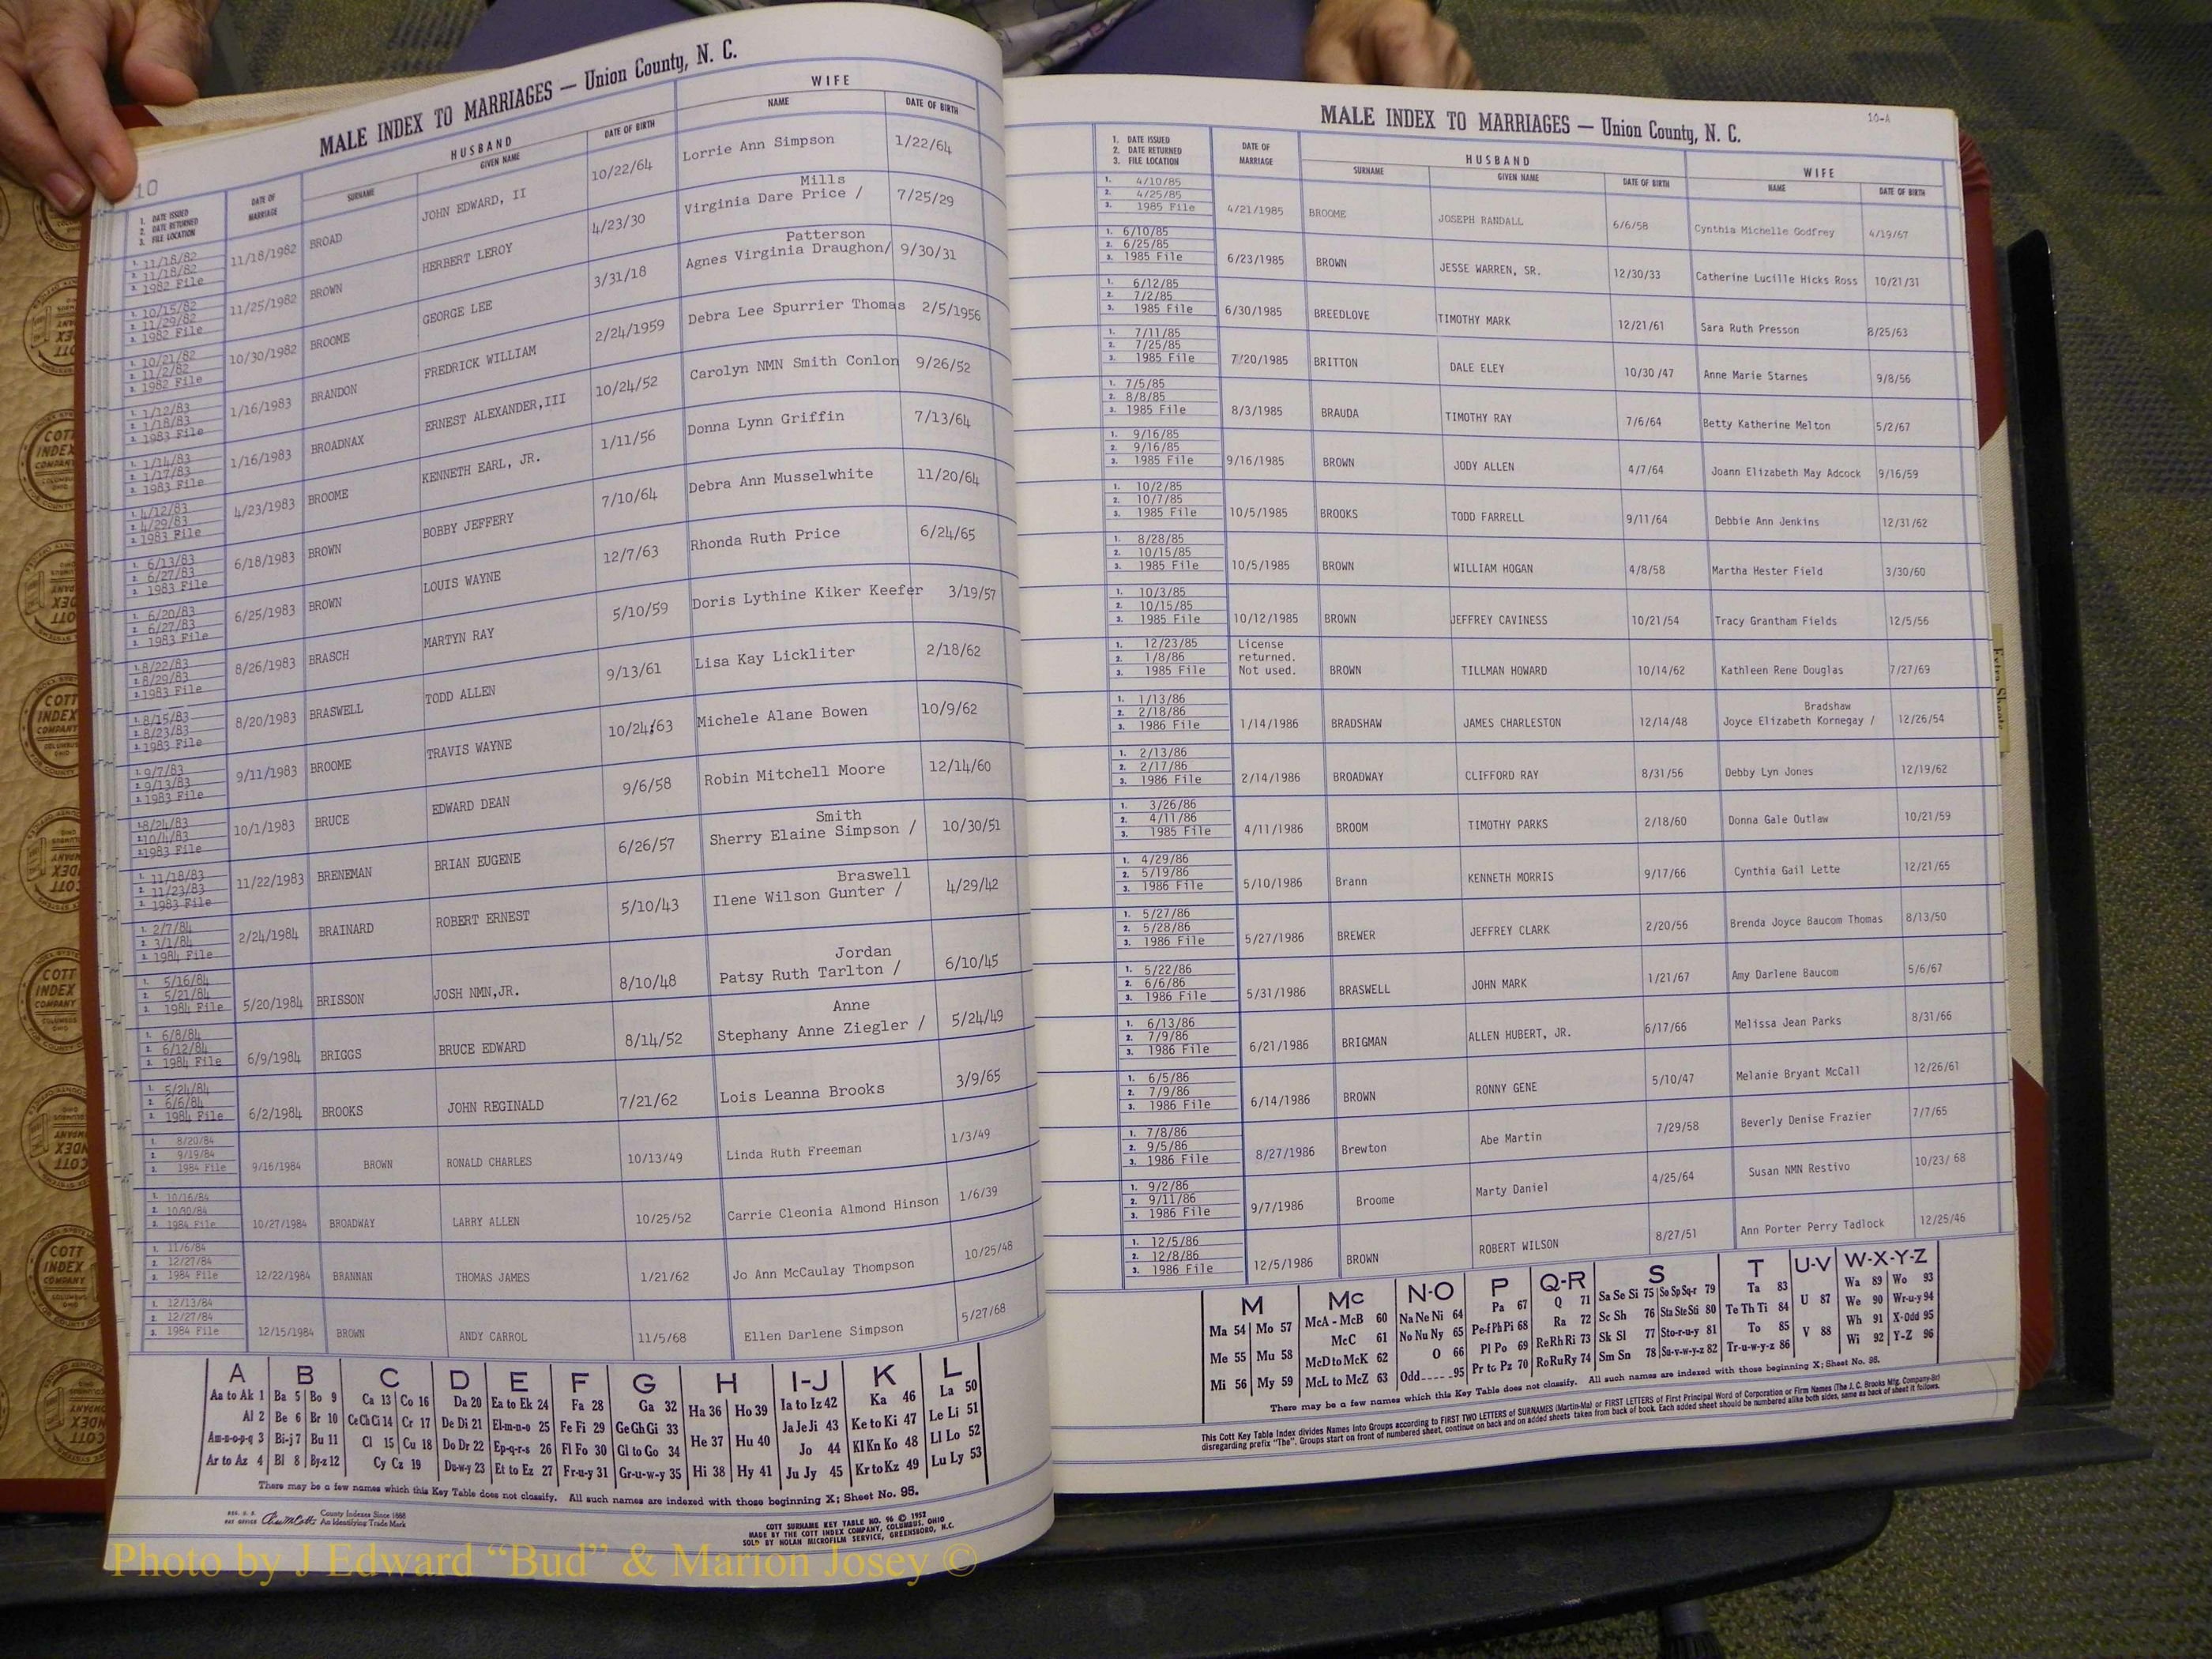 10
MALE INDEX TO MARRIAGES — Union County, N. C.
1. DATE ISSUED 2. DATE RETURNED 3. FILE LOCATION DATE OF MARRIAGE SURNAME HUSBAND GIVEN NAME DATE OF BIRTH WIFE NAME DATE OF BIRTH
1. 11/18/82 2. 11/18/82 3. 1982 File 11/18/1982 BROAD JOHN EDWARD, II 10/22/64 Lorrie Ann Simpson 1/22/64
1. 10/15/82 2. 11/29/82 3. 1982 File 11/25/1982 BROWN HERBERT LEROY 4/23/30 Virginia Dare Price / Mills 7/25/29
1. 10/21/82 2. 11/2/82 3. 1982 File 10/30/1982 BROOME GEORGE LEE 3/31/18 Agnes Virginia Draughon/ Patterson 9/30/31
1. 1/12/83 2. 1/18/83 3. 1983 File 1/16/1983 BRANDON FREDRICK WILLIAM 2/24/1959 Debra Lee Spurrier Thomas 2/5/1956
1. 1/14/83 2. 1/17/83 3. 1983 File 1/16/1983 BROADNAX ERNEST ALEXANDER,III 10/24/52 Carolyn NMN Smith Conlon 9/26/52
1. 4/12/83 2. 4/29/83 3. 1983 File 4/23/1983 BROOME KENNETH EARL, JR. 1/11/56 Donna Lynn Griffin 7/13/64
1. 6/13/83 2. 6/27/83 3. 1983 File 6/18/1983 BROWN BOBBY JEFFERY 7/10/64 Debra Ann Musselwhite 11/20/64
1. 6/20/83 2. 6/27/83 3. 1983 File 6/25/1983 BROWN LOUIS WAYNE 12/7/63 Rhonda Ruth Price 6/24/65
1. 8/22/83 2. 8/29/83 3. 1983 File 8/26/1983 BRASCH MARTYN RAY 5/10/59 Doris Lythine Kiker Keefer 3/19/57
1. 8/15/83 2. 8/23/83 3. 1983 File 8/20/1983 BRASWELL TODD ALLEN 9/13/61 Lisa Kay Lickliter 2/18/62
1. 9/7/83 2. 9/13/83 3. 1983 File 9/11/1983 BROOME TRAVIS WAYNE 10/24/63 Michele Alane Bowen 10/9/62
1. 8/24/83 2. 10/4/83 3. 1983 File 10/1/1983 BRUCE EDWARD DEAN 9/6/58 Robin Mitchell Moore 12/14/60
1. 11/18/83 2. 11/23/83 3. 1983 File 11/22/1983 BRENEMAN BRIAN EUGENE 6/26/57 Sherry Elaine Simpson / Smith 10/30/51
1. 2/7/84 2. 3/1/84 3. 1984 File 2/24/1984 BRAINARD ROBERT ERNEST 5/10/43 Ilene Wilson Gunter / Braswell 4/29/42
1. 5/16/84 2. 5/21/84 3. 1984 File 5/20/1984 BRISSON JOSH NMN,JR. 8/10/48 Patsy Ruth Tarlton / Jordan 6/10/45
1. 6/8/84 2. 6/12/84 3. 1984 File 6/9/1984 BRIGGS BRUCE EDWARD 8/14/52 Stephany Anne Ziegler / Anne 5/24/49
1. 5/24/84 2. 6/6/84 3. 1984 File 6/2/1984 BROOKS JOHN REGINALD 7/21/62 Lois Leanna Brooks 3/9/65
1. 8/20/84 2. 9/19/84 3. 1984 File 9/16/1984 BROWN RONALD CHARLES 10/13/49 Linda Ruth Freeman 1/3/49
1. 10/16/84 2. 10/30/84 3. 1984 File 10/27/1984 BROADWAY LARRY ALLEN 10/25/52 Carrie Cleonia Almond Hinson 1/6/39
1. 11/6/84 2. 12/27/84 3. 1984 File 12/22/1984 BRANNAN THOMAS JAMES 1/21/62 Jo Ann McCaulay Thompson 10/25/48
1. 12/13/84 2. 12/27/84 3. 1984 File 12/15/1984 BROWN ANDY CARROL 11/5/68 Ellen Darlene Simpson 5/27/68
A B C D E F G H I-J K L
Aa to Ak 1 Ba 5 Bo 9 Ca 13 Co 16 Da 20 Ea to Ek 24 Fa 28 Ga 32 Ha 36 Ho 39 Ia to Iz 42 Ka 46 La 50
Al 2 Be 6 Br 10 Ce Ch Ci 14 Cr 17 De Di 21 El-m-n-o 25 Fe Fi 29 Ge Gh Gi 33 He 37 Hu 40 Ja Je Ji 43 Ke to Ki 47 Le Li 51
Am-n-o-p-q 3 Bi-j 7 Bu 11 Cl 15 Cu 18 Do Dr 22 Ep-q-r-s 26 Fl Fo 30 Gl to Go 34 Jo 44 Kl Kn Ko 48 Ll Lo 52
Ar to Az 4 Bl 8 By-z 12 Cy Cz 19 Du-w-y 23 Et to Ez 27 Fr-u-y 31 Gr-u-w-y 35 Hi 38 Hy 41 Ju Jy 45 Kr to Kz 49 Lu Ly 53
There may be a few names which this Key Table does not classify. All such names are indexed with those beginning X; Sheet No. 95.
REG. U. S. PAT OFFICE County Indexes Since 1888
An Identifying Trade Mark
COTT SURNAME KEY TABLE NO. 96 © 1952
MADE BY THE COTT INDEX COMPANY, COLUMBUS, OHIO
SOLD BY NOLAN MICROFILM SERVICE, GREENSBORO, N.C.
Photo by J Edward “Bud” & Marion Josey ©
10-A
MALE INDEX TO MARRIAGES — Union County, N. C.
1. DATE ISSUED 2. DATE RETURNED 3. FILE LOCATION DATE OF MARRIAGE HUSBAND SURNAME GIVEN NAME DATE OF BIRTH WIFE NAME DATE OF BIRTH
1. 4/10/85 2. 4/25/85 3. 1985 File 4/21/1985 BROOME JOSEPH RANDALL 6/6/58 Cynthia Michelle Godfrey 4/19/67
1. 6/10/85 2. 6/25/85 3. 1985 File 6/23/1985 BROWN JESSE WARREN, SR. 12/30/33 Catherine Lucille Hicks Ross 10/21/31
1. 6/12/85 2. 7/2/85 3. 1985 File 6/30/1985 BREEDLOVE TIMOTHY MARK 12/21/61 Sara Ruth Presson 8/25/63
1. 7/11/85 2. 7/25/85 3. 1985 File 7/20/1985 BRITTON DALE ELEY 10/30/47 Anne Marie Starnes 9/8/56
1. 7/5/85 2. 8/8/85 3. 1985 File 8/3/1985 BRAUDA TIMOTHY RAY 7/6/64 Betty Katherine Melton 5/2/67
1. 9/16/85 2. 9/16/85 3. 1985 File 9/16/1985 BROWN JODY ALLEN 4/7/64 Joann Elizabeth May Adcock 9/16/59
1. 10/2/85 2. 10/7/85 3. 1985 File 10/5/1985 BROOKS TODD FARRELL 9/11/64 Debbie Ann Jenkins 12/31/62
1. 8/28/85 2. 10/15/85 3. 1985 File 10/5/1985 BROWN WILLIAM HOGAN 4/8/58 Martha Hester Field 3/30/60
1. 10/3/85 2. 10/15/85 3. 1985 File 10/12/1985 BROWN JEFFREY CAVINESS 10/21/54 Tracy Grantham Fields 12/5/56
1. 12/23/85 2. 1/8/86 3. 1985 File License returned. Not used. BROWN TILLMAN HOWARD 10/14/62 Kathleen Rene Douglas 7/27/69
1. 1/13/86 2. 2/18/86 3. 1986 File 1/14/1986 BRADSHAW JAMES CHARLESTON 12/14/48 Joyce Elizabeth Kornegay / Bradshaw 12/26/54
1. 2/13/86 2. 2/17/86 3. 1986 File 2/14/1986 BROADWAY CLIFFORD RAY 8/31/56 Debby Lyn Jones 12/19/62
1. 3/26/86 2. 4/11/86 3. 1985 File 4/11/1986 BROOM TIMOTHY PARKS 2/18/60 Donna Gale Outlaw 10/21/59
1. 4/29/86 2. 5/19/86 3. 1986 File 5/10/1986 Brann KENNETH MORRIS 9/17/66 Cynthia Gail Lette 12/21/65
1. 5/27/86 2. 5/28/86 3. 1986 File 5/27/1986 BREWER JEFFREY CLARK 2/20/56 Brenda Joyce Baucom Thomas 8/13/50
1. 5/22/86 2. 6/6/86 3. 1986 File 5/31/1986 BRASWELL JOHN MARK 1/21/67 Amy Darlene Baucom 5/6/67
1. 6/13/86 2. 7/9/86 3. 1986 File 6/21/1986 BRIGMAN ALLEN HUBERT, JR. 6/17/66 Melissa Jean Parks 8/31/66
1. 6/5/86 2. 7/9/86 3. 1986 File 6/14/1986 BROWN RONNY GENE 5/10/47 Melanie Bryant McCall 12/26/61
1. 7/8/86 2. 9/5/86 3. 1986 File 8/27/1986 Brewton Abe Martin 7/29/58 Beverly Denise Frazier 7/7/65
1. 9/2/86 2. 9/11/86 3. 1986 File 9/7/1986 Broome Marty Daniel 4/25/64 Susan NMN Restivo 10/23/ 68
1. 12/5/86 2. 12/8/86 3. 1986 File 12/5/1986 BROWN ROBERT WILSON 8/27/51 Ann Porter Perry Tadlock 12/25/46
M Mc N-O P Q-R S T U-V W-X-Y-Z
Ma 54 Mo 57 McA - McB 60 Na Ne Ni 64 Pa 67 Q 71 Sa Se Si 75 So Sp Sq-r 79 Ta 83 U 87 Wa 89 Wo 93
Me 55 Mu 58 McC 61 No Nu Ny 65 Pe-f Ph Pi 68 Ra 72 Sc Sh 76 Sta Ste Sti 80 Te Th Ti 84 We 90 Wr-u-y 94
McD to McK 62 O 66 Pl Po 69 Re Rh Ri 73 Sk Sl 77 Sto-r-u-y 81 To 85 V 88 Wh 91 X-Odd 95
Mi 56 My 59 McL to McZ 63 Odd 95 Pr to Pz 70 Ro Ru Ry 74 Sm Sn 78 Su-v-w-y-z 82 Tr-u-w-y-z 86 Wi 92 Y-Z 96
There may be a few names which this Key Table does not classify. All such names are indexed with those beginning X; Sheet No. 95.
This Cott Key Table Index divides Names into Groups according to FIRST TWO LETTERS of SURNAMES (Martin-Ma) or FIRST LETTERS of First Principal Word of Corporation or Firm Names (The J. C. Brooks Mfg. Company-Br)
disregarding prefix "The". Groups start on front of numbered sheet, continue on back and on added sheets taken from back of book. Each added sheet should be numbered alike both sides, same as back of sheet it follows.
COTT
INDEX
COMPANY
COLUMBUS
OHIO